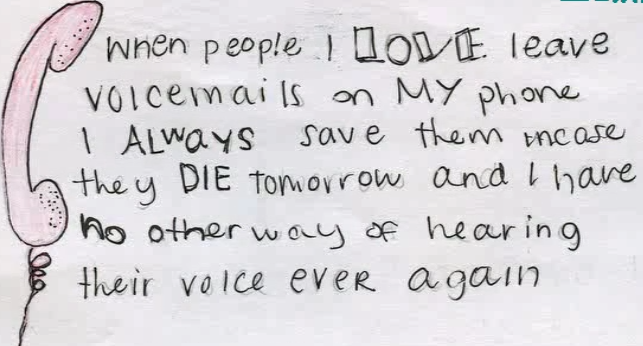 When people I LOVE leave
voicemails on MY phone
I ALWAYS save them incase
they DIE tomorrow and I have
no other way of hearing
their voice ever again